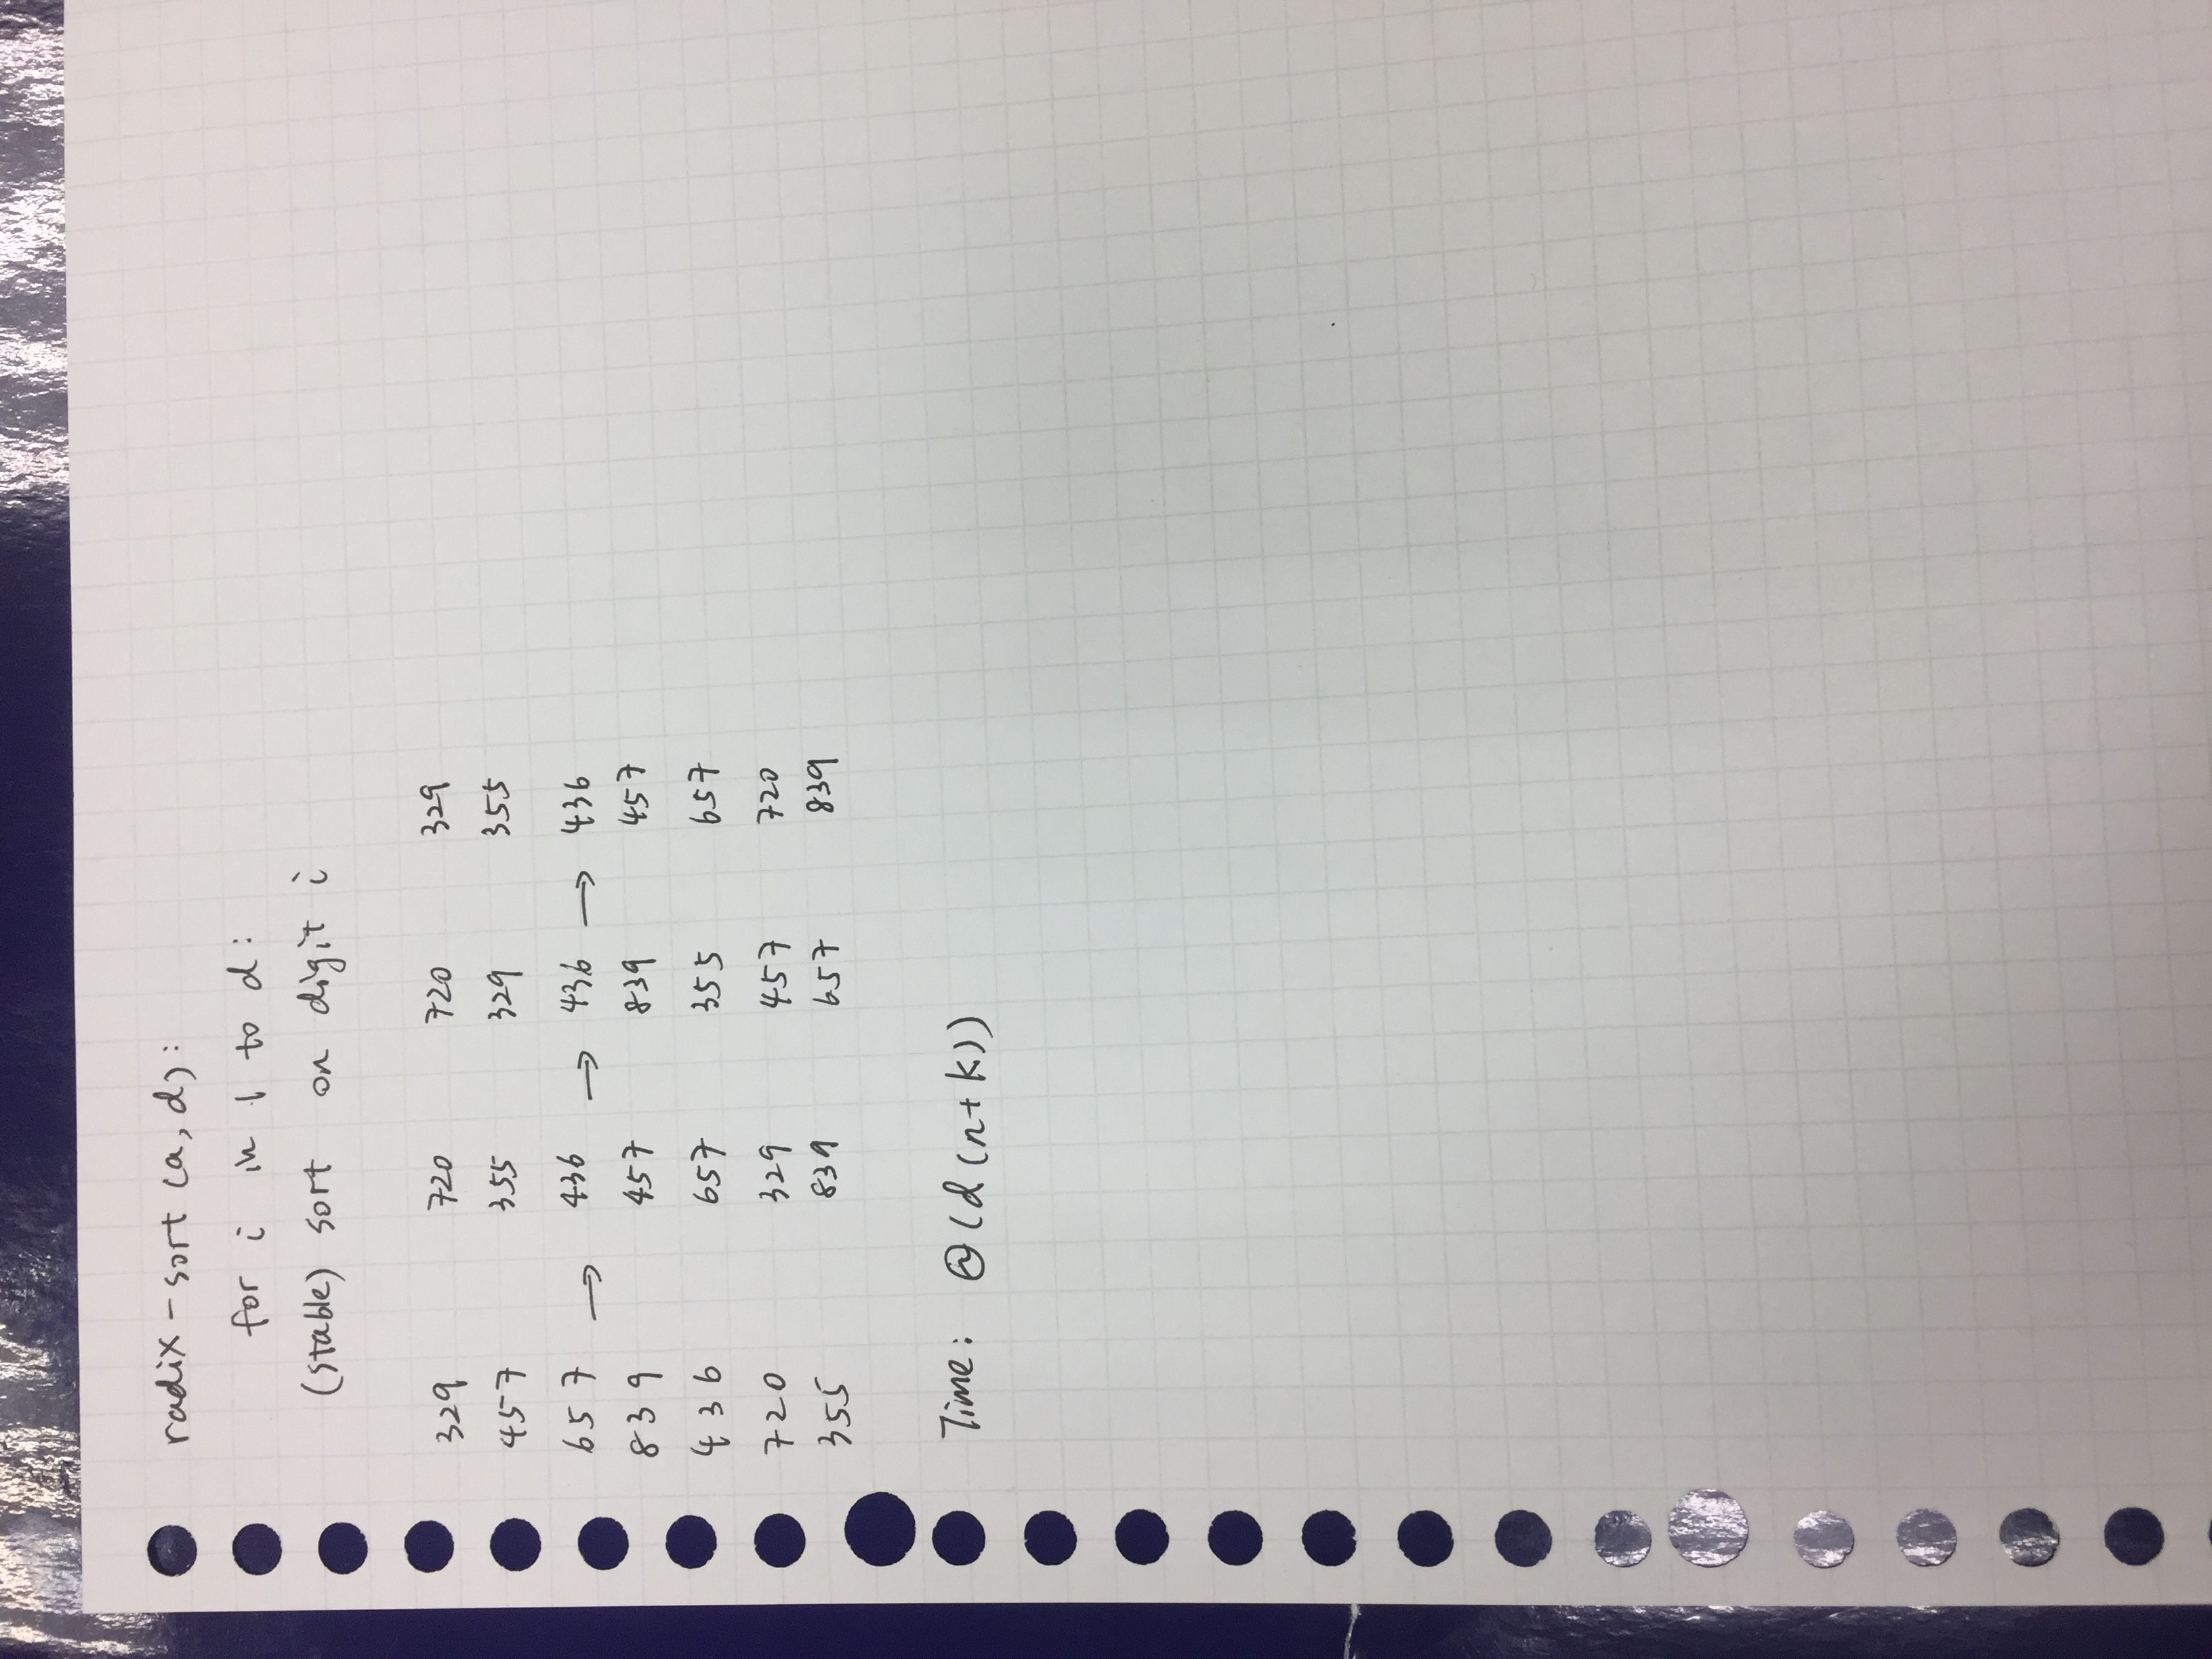 radix-sort (a, d):
for i in 1 to d:
(stable) sort on digit i
329 720 720 329
457 355 329 355
657 → 436 → 436 → 436
839 457 839 457
436 657 355 657
720 329 457 720
355 839 657 839
Time: Θ(d(n+k))